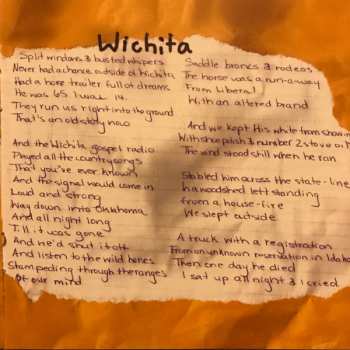 Wichita
Split windows & busted whispers
Never had a chance outside of Wichita
Had a horse trailer full of dreams
He was 65 I was 14
They run us right into the ground
That's an old story now
And the Wichita gospel radio
Played all the country songs
That you've ever known
And the signal would come in
Loud and strong
Way down into Oklahoma
And all night long
Till it was gone
And he'd shut it off
And listen to the wild horses
Stampeding through the ranges
Of our mind
Saddle broncs & rodeos
The horse was a run-a-way
From Liberal
With an altered brand
And we kept His white from showin
With shoe polish & number 2 stove oil
The wind stood still when he ran
Stabled him across the state-line
In a woodshed left standing
from a house-fire
We slept outside
A truck with a registration
From an unknown reservation in Idaho
Then one day he died
I sat up all night & I cried